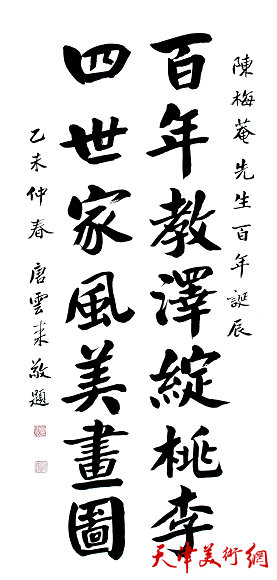 陳梅菴先生百年誕辰
百年教澤綻桃李
四世家風美畫圖
乙未仲春 唐雲來敬題
天津美術網